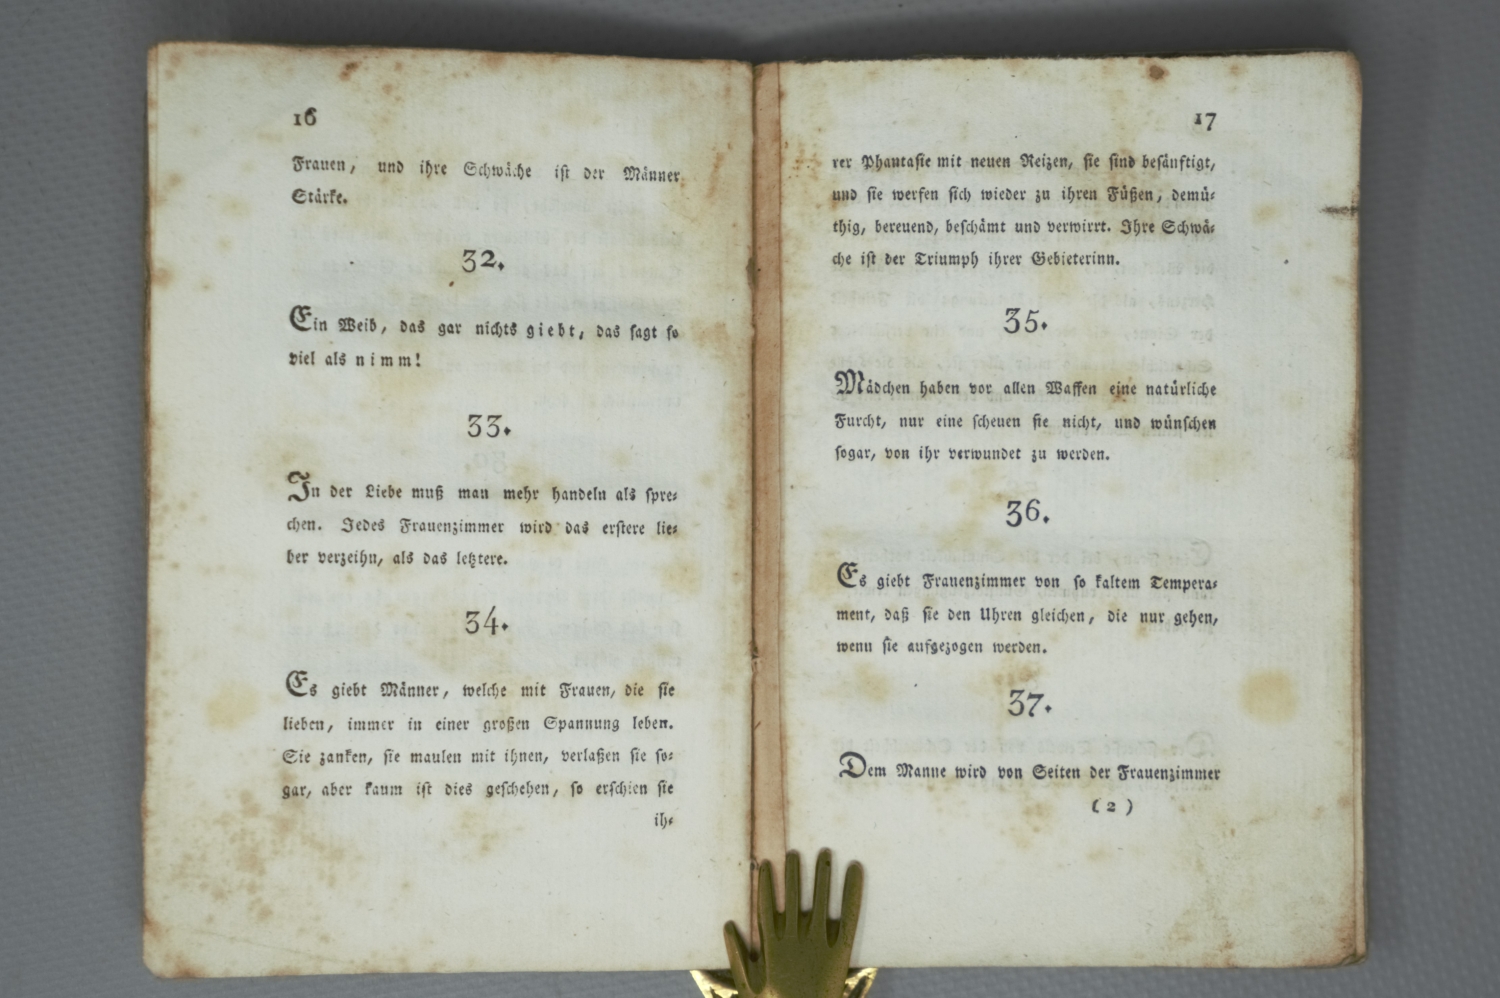 16
Frauen, und ihre Schwäche ist der Männer
Stärke.
32.
Ein Weib, das gar nichts giebt, das sagt so
viel als nimm!
33.
In der Liebe muß man mehr handeln als spre-
chen. Jedes Frauenzimmer wird das erstere lie-
ber verzeihn, als das letztere.
34.
Es giebt Männer, welche mit Frauen, die sie
lieben, immer in einer großen Spannung leben.
Sie zanken, sie maulen mit ihnen, verlaßen sie so-
gar, aber kaum ist dies geschehen, so erschien sie
ih-
17
rer Phantasie mit neuen Reizen, sie sind besänftigt,
und sie werfen sich wieder zu ihren Füßen, demü-
thig, bereuend, beschämt und verwirrt. Ihre Schwä-
che ist der Triumph ihrer Gebieterinn.
35.
Mädchen haben vor allen Waffen eine natürliche
Furcht, nur eine scheuen sie nicht, und wünschen
sogar, von ihr verwundet zu werden.
36.
Es giebt Frauenzimmer von so kaltem Tempera-
ment, daß sie den Uhren gleichen, die nur gehen,
wenn sie aufgezogen werden.
37.
Dem Manne wird von Seiten der Frauenzimmer
(2)